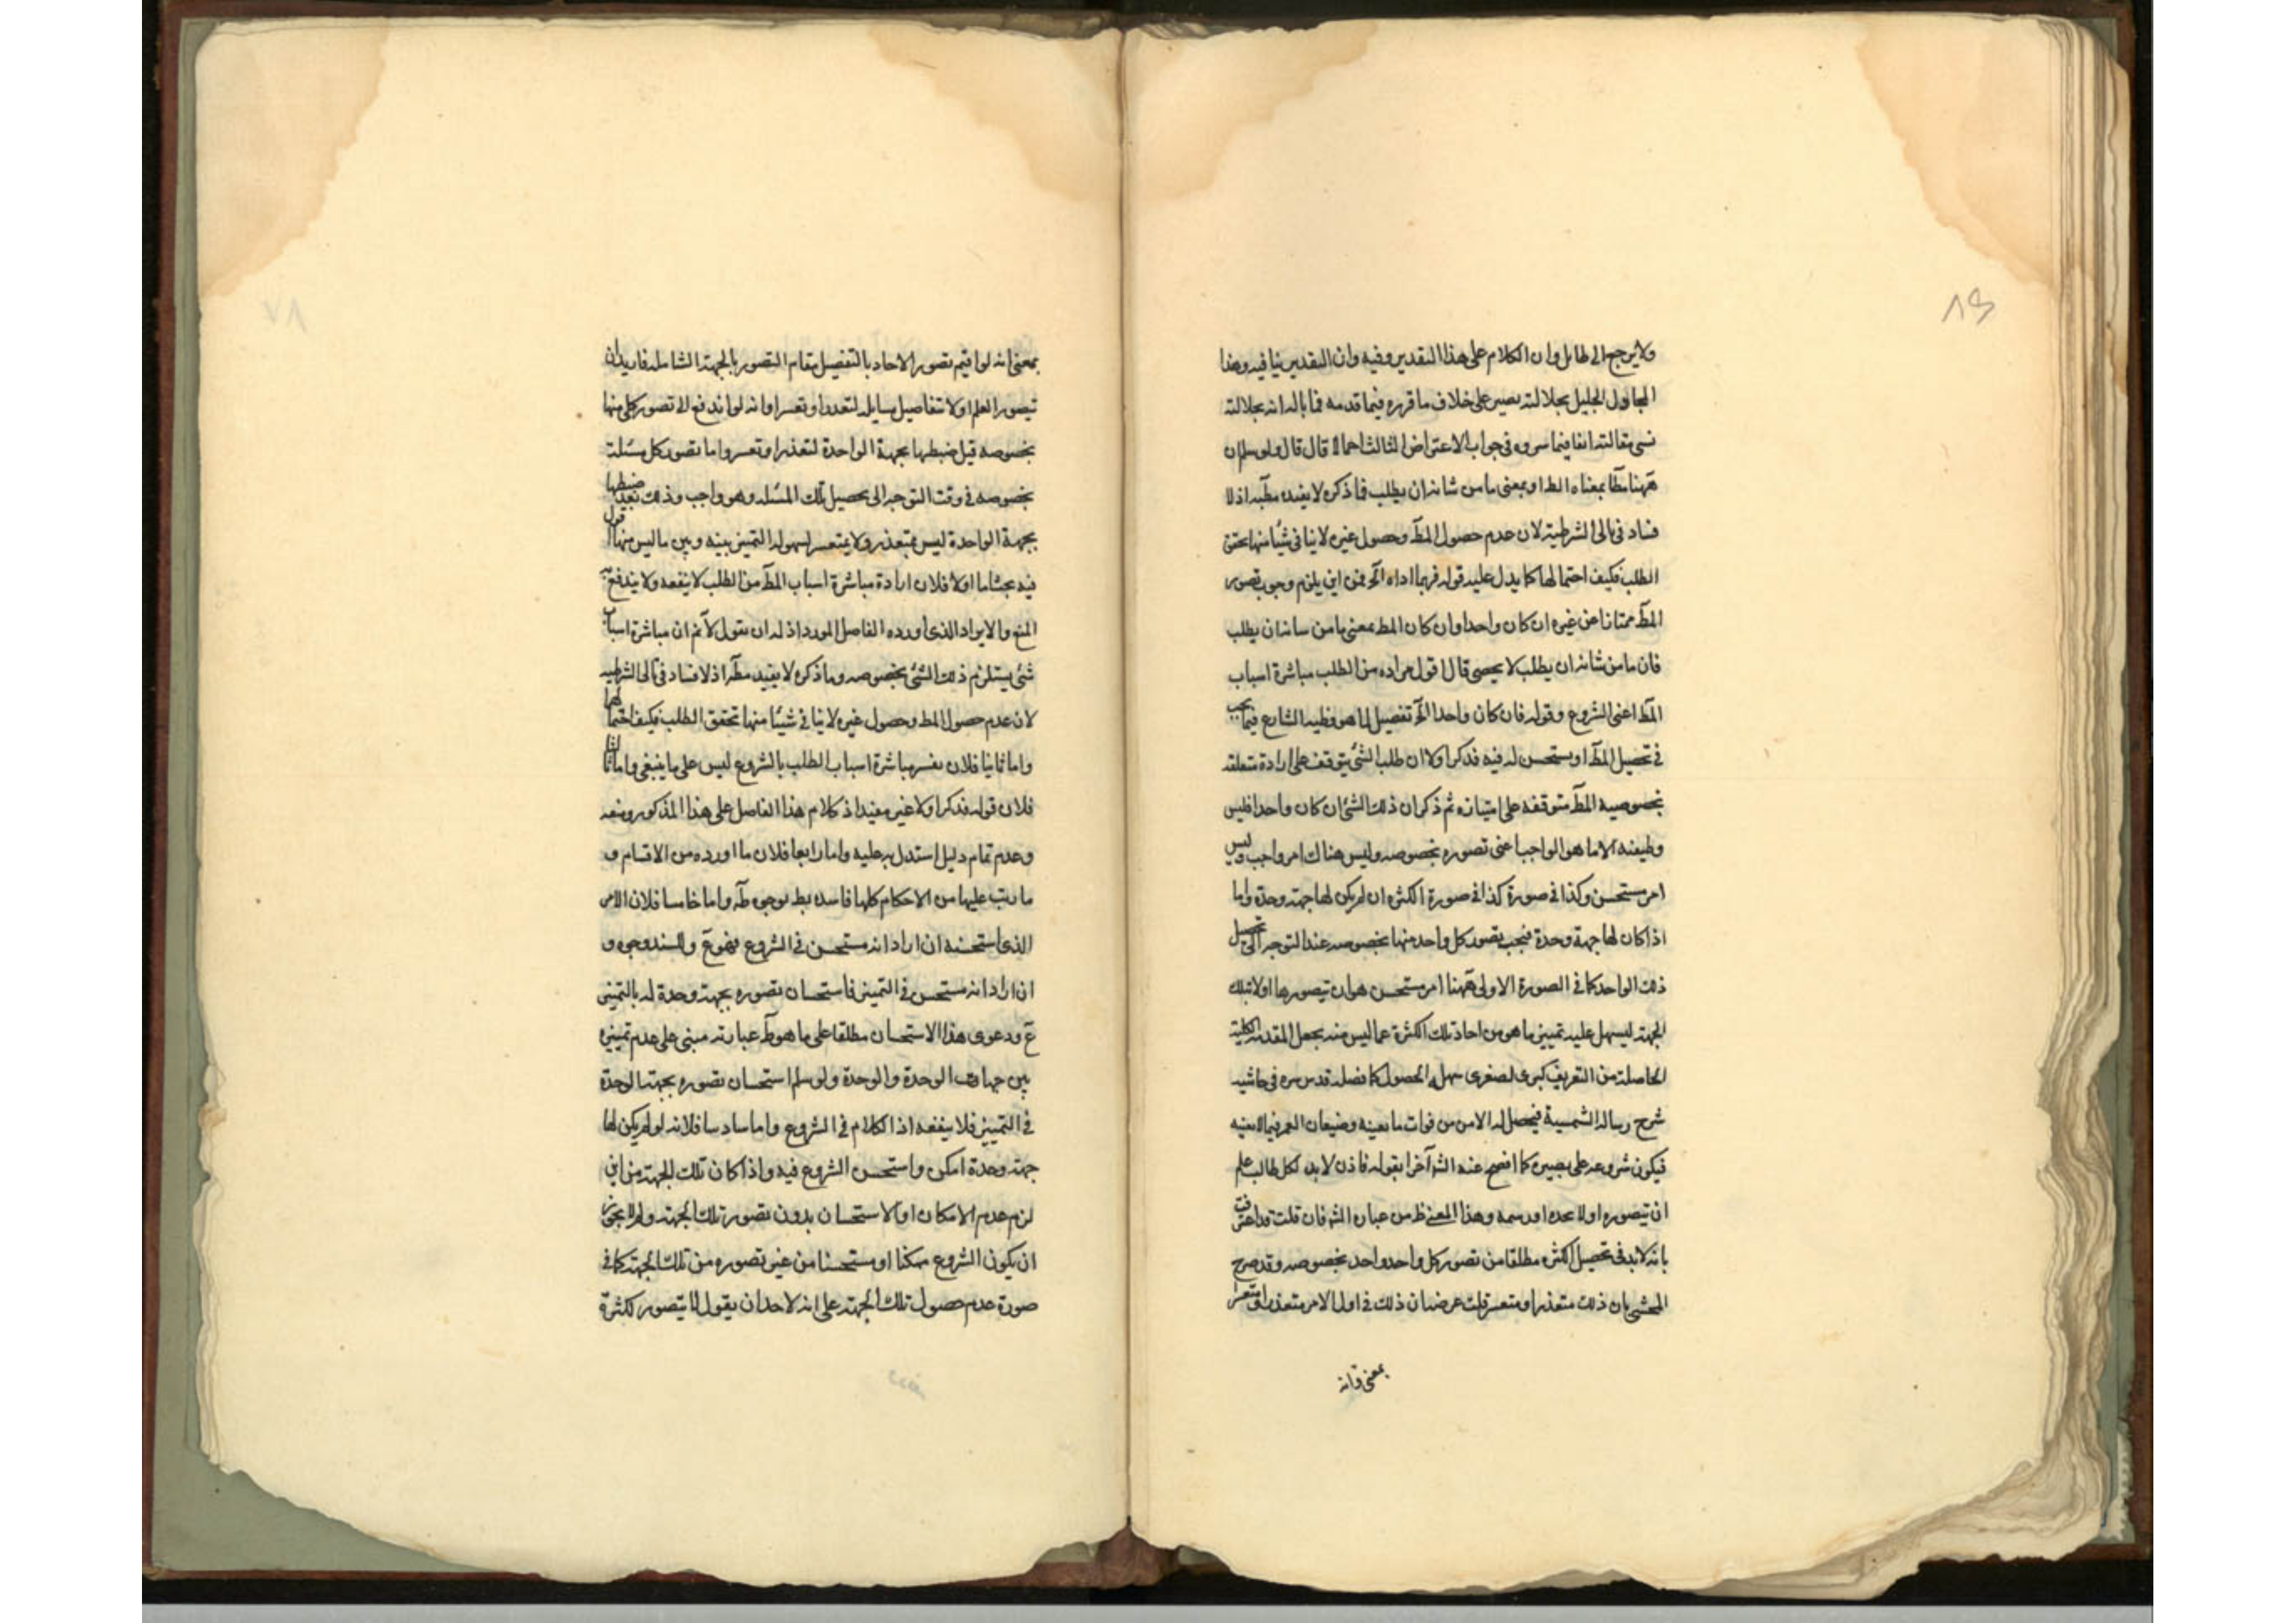 ولا يرجع الى طايل وان الكلام على هذا التقدير وفيه وان التقدير ينافيه وهذا
الجليل بجلالته يصير على خلاف ما قرره فيما قدمه فما باله انه بجلالته
نسى مقالته انفا فيما سروه فى جواب الاعتراض الثالث احمالا قال قال ولو سلم ان
ههنا مطا بمعناه الط او بمعنى ما من شانه ان يطلب فما ذكره لا يفيد مطبه اذ لا
فساد فى تالى الشرطية لان عدم حصول المط وحصول غيره لا ينافى شيا منها تحقق
الطلب فكيف احتمالها كما يدل عليه قوله فربما اداه الخ فمن اين يلزم وجوب تصور
المط ممتازا عن غيره ان كان واحدا وان كان المط بمعنى ما من شانه ان يطلب
فان ما من شانه ان يطلب لا يحصى قال اقول مراده من الطلب مباشرة اسباب
المط اعنى الشروع وقوله فان كان واحدا الخ تفصيل لما هو وظيفه الشارع فيما يجب
فى تحصيل المط او يستحسن له فيه فذكر اولا ان طلب الشئ يتوقف على ارادة متعلقه
بخصوصيه المط متوقفه على امتيازه ثم ذكر ان ذلك الشئ ان كان واحدا فليس
وظيفته الا ما هو الواجب اعنى تصوره بخصوصه وليس هناك امر واجب وليس
امر مستحسن وكذا فى صورة كذا فى صورة الكثره ان لم يكن لها جهة وحدة واما
اذا كان لها جهة وحدة فيجب تصور كل واحد منها بخصوصه عند التوجه الى تحصيل
ذلك الواحد كما فى الصورة الاولى فههنا امر مستحسن هو ان تصورها اولا بتلك
الجهة ليسهل عليه تمييز ما هو من احاد تلك الكثرة عما ليس منه بجعل المقدمه الكلية
الحاصلة من التعريف كبرى لصغرى سهلة الحصول كما فصله قدس سره فى حاشيه
شرح رساله الشمسية فيحصل له الامن من فوات ما يعينه وضيعان العمر فيما لا يعنيه
فيكون شروعه على بصيره كما افصح عنه الش آخرا بقوله فاذن لا بد لكل طالب علم
ان يتصوره اولا بحده او رسمه وهذا المعنى ظ من عبارة الش فان قلت قد اعترف
بانه لا بد فى تحصيل الكثره مطلقا من تصور كل واحد واحد بخصوصه وقد صرح
المحشى بان ذلك متعذر او متعسر قلت غرضنا ان ذلك فى اول الامر متعذر او متعسر
بمعنى انه
بمعنى انه لو اقيم تصور الاحاد بالتفصيل مقام التصور بالجهة الشامله فاريد ان
يتصور العلم اولا بتفاصيل مسايله لتعذر او تعسر او انه لو اندفع الى تصور كل منها
بخصوصه قبل ضبطها بجهة الواحدة لتعذر او تعسر واما تصور كل مسئلة
بخصوصه فى وقت التوجه الى تحصيل تلك المسئله وهو واجب وذلك بعد ضبطها
بجهة الواحدة ليس بمتعذر ولا بمتعسر لسهولة التميز بينه وبين ما ليس منها اقول
فيه بحث اما اولا فلان ارادة مباشرة اسباب المط من الطلب لا ينفعه ولا يندفع به
المنع والايراد الذى اورده الفاضل المورد اذ له ان يقول لانم ان مباشرة اسباب
شئ يستلزم ذلك الشئ بخصوصه وما ذكره لا يفيد مطه اذ لا فساد فى تالى الشرطيه
لان عدم حصول المط وحصول غيره لا ينافى شيئا منها تحقق الطلب فكيف احتمالها
واما ثانيا فلان تفسير مباشرة اسباب الطلب بالشروع ليس على ما ينبغى واما ثالثا
فلان قوله فذكر اولا غير مفيد اذ كلام هذا الفاضل على هذا المذكور ومنعه
وعدم تمام دليل استدل به عليه واما رابعا فلان ما اورده من الاقسام و
ما رتب عليها من الاحكام كلها فاسده بط بوجوه طه واما خامسا فلان الامر
الذى استحسنه ان اراد انه مستحسن فى الشروع فهو مع والسند وجوه و
ان اراد انه مستحسن فى التميز فاستحسان تصوره بجهة وحدة له بالتميز
مع ودعوى هذا الاستحسان مطلقا على ما هو ظ عبارته مبنى على عدم تمييزه
بين جهات الوحدة والوحدة ولو سلم استحسان تصوره بجهة الوحدة
فى التمييز فلا ينفعه اذ الكلام فى الشروع واما سادسا فلانه لو لم يكن لها
جهة وحدة امكن واستحسن الشروع فيه واذا كان تلك الجهة من اين
لزم عدم الامكان او الاستحسان بدون تصور تلك الجهة ولم لا يجوز
ان يكون الشروع ممكنا او مستحسنا من غير تصوره من تلك الجهة كما فى
صورة عدم حصول تلك الجهة على انه لاحد ان يقول لما يتصور لكثرة